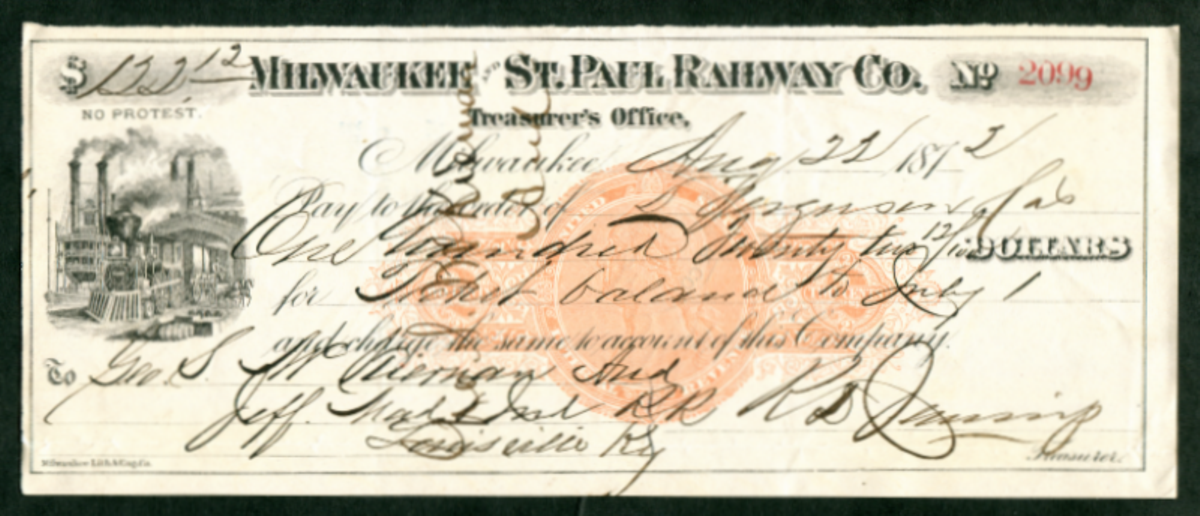 $ 122.12 MILWAUKEE AND ST. PAUL RAILWAY CO. No 2099
NO PROTEST.
Treasurer's Office,
Milwaukee Aug 22 1872
Pay to the order of S Ferguson Cas
One hundred twenty two 12/100 DOLLARS
for Ticket balance to July 1
and charge the same to account of this Company.
To Geo S. McKiernan And
Jeff. Mad & Ind RR R D Jennings
Louisville Ky
Milwaukee Lith. & Eng. Co. Treasurer.